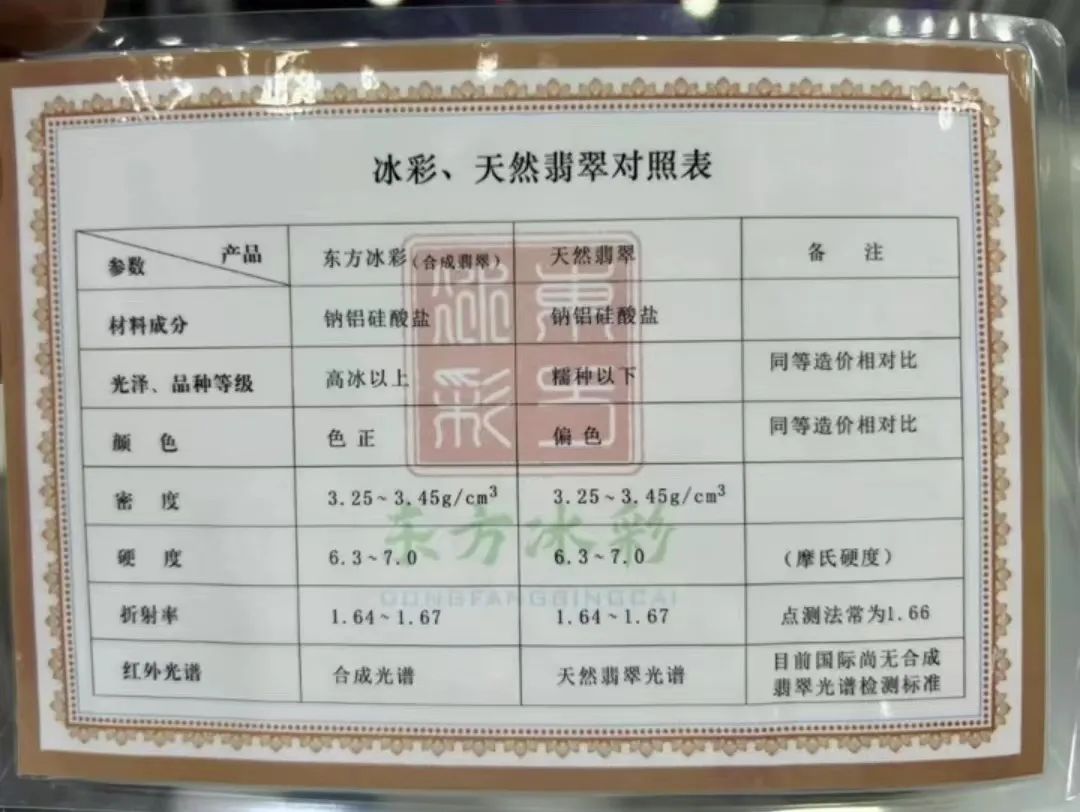 冰彩、天然翡翠对照表
产品
参数
东方冰彩(合成翡翠)
天然翡翠
备 注
材料成分
钠铝硅酸盐
钠铝硅酸盐
光泽、品种等级
高冰以上
糯种以下
同等造价相对比
颜 色
色正
偏色
同等造价相对比
密 度
3.25~3.45g/cm³
3.25~3.45g/cm³
硬 度
6.3~7.0
6.3~7.0
(摩氏硬度)
折射率
1.64~1.67
1.64~1.67
点测法常为1.66
红外光谱
合成光谱
天然翡翠光谱
目前国际尚无合成
翡翠光谱检测标准
东方冰彩